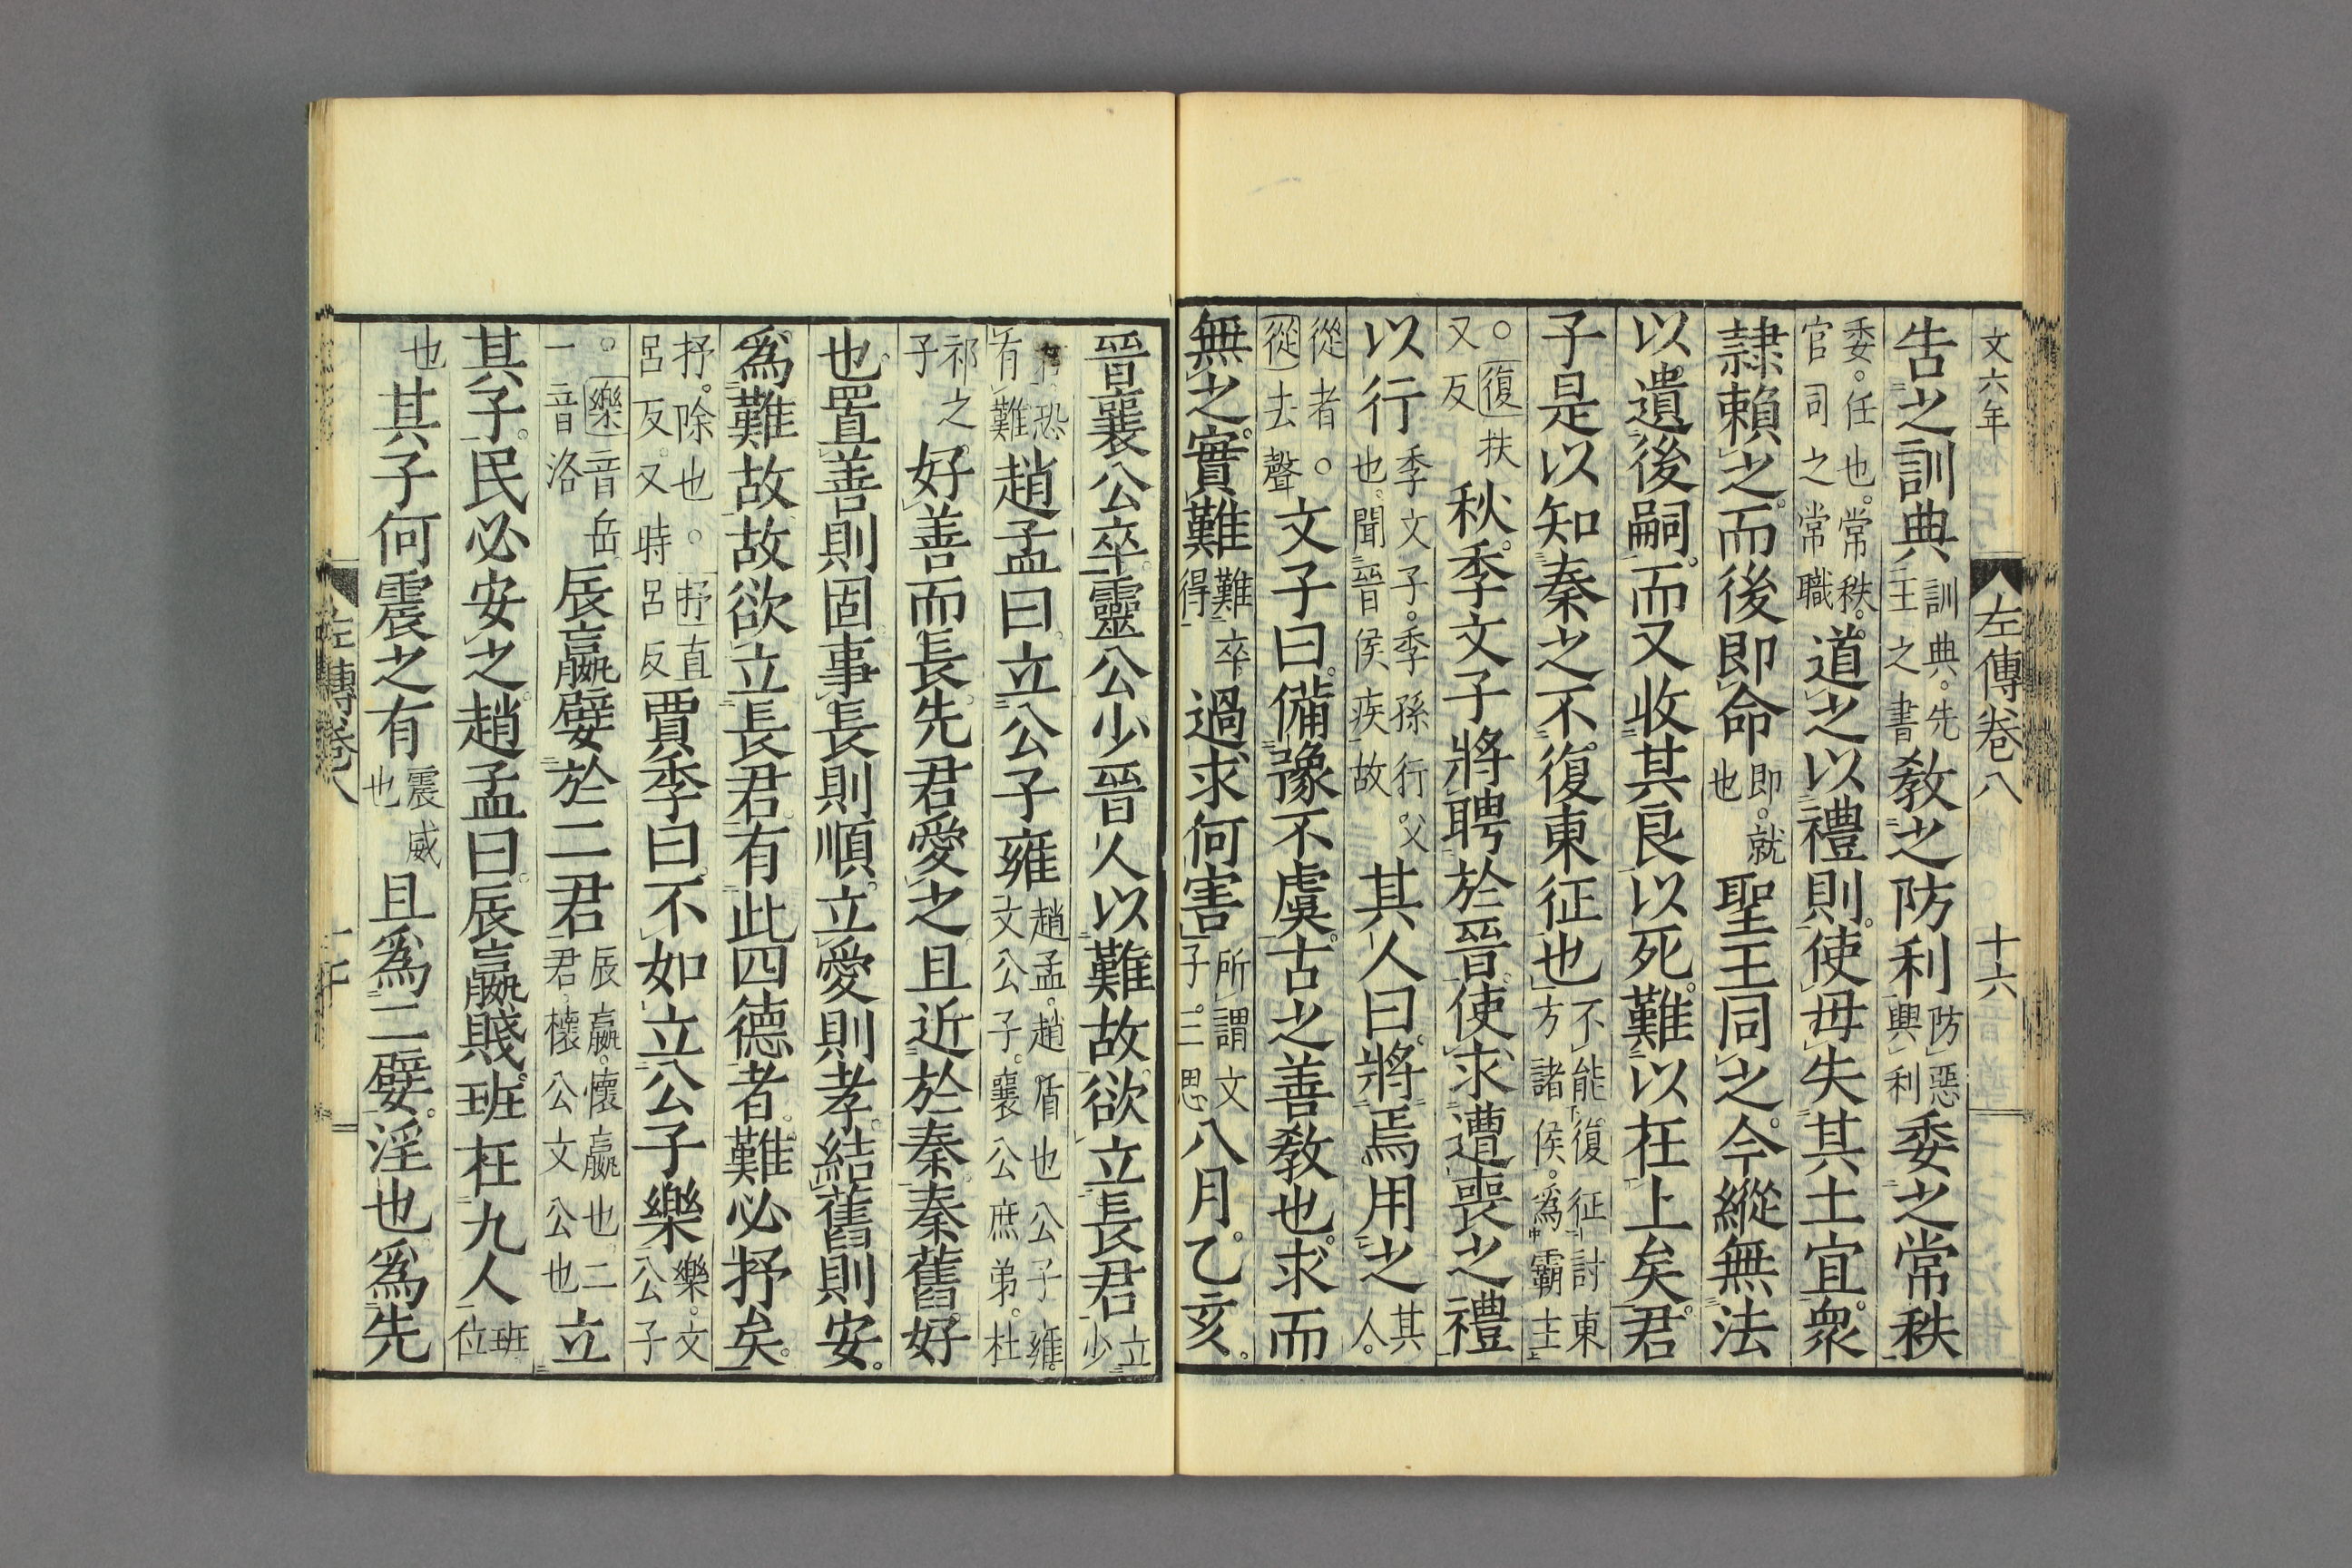 文六年 左傳卷八 十六
告之訓典訓典。先王之書教之防利防惡興利委之常秩
委。任也。常秩。官司之常職道之以禮則。使毋失其土宜。衆
隸賴之。而後即命即。就也聖王同之。今縱無法
以遺後嗣。而又收其良以死。難以在上矣。君
子是以知秦之不復東征也不能復征討東方諸侯。爲霸主
。復扶又反秋。季文子將聘於晉。使求遭喪之禮
以行季文子。季孫行父。也。聞晉侯疾故其人曰。將焉用之其人。
從者。從去聲文子曰。備豫不虞。古之善教也。求而
無之。實難難卒得過求何害所謂文子。三思八月。乙亥。
晉襄公卒。靈公少。晉人以難故。欲立長君立少
恐有難趙孟曰。立公子雍趙孟。趙盾也公子雍。文公子。襄公庶弟。杜
祁之子好善而長。先君愛之。且近於秦。秦舊好
也。置善則固。事長則順。立愛則孝。結舊則安。
爲難故。故欲立長君。有此四德者。難必抒矣。
抒。除也。。抒直呂反。又時呂反賈季曰。不如立公子樂樂。文公子
。樂音岳一音洛辰嬴嬖於二君辰嬴。懷嬴也二君。懷公文公也立
其子。民必安之。趙孟曰。辰嬴賤。班在九人班位
也其子何震之有震威也且爲二嬖。淫也爲先
左傳卷八